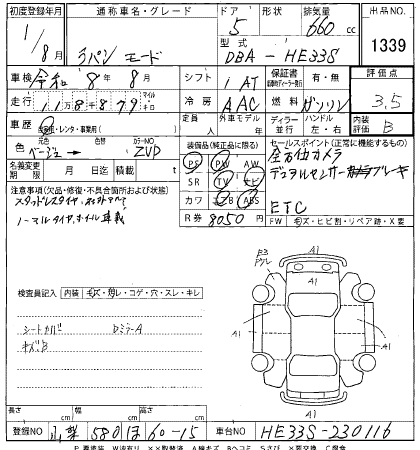 初度登録年月 通称車名・グレード ドア 形状 排気量 出品NO.
1/8月 ラパン モード 5 660 cc 1339
型式 DBA-HE33S
車検 令和 8年 8月 シフト 1 AT 保証書 有・無 評価点
走行 118879 マイル キロ 冷房 AAC 燃料 ガソリン 3.5
車歴 自家用・レンタ・事業用( ) 定員 人 外車モデル 年 ディーラー 並行 ハンドル 左・右 内装評価 B
色 ベージュ → 色替 カラーNO. ZVD 装備品(純正品に限る) セールスポイント(正常に機能するもの)
名義変更期限 月 日 積載 PS PW AW 全方位カメラ
注意事項(欠品・修復・不具合箇所および状態) SR TV ナビ デュアルセンサーブレーキ
スタッドレスタイヤ カワ ABS ETC
ノーマルタイヤ、ホイル 車載 R券 8050 円 FW キズ・ヒビ割・リペア跡・X要
検査員記入 内装 キズ・コゲ・穴・スレ・キレ
シートカバー DミラーA
キズB
A1
A1
A1
A1
長さ cm 幅 cm 高さ cm
登録NO 山梨 580 ほ 60-15 車台NO HE33S-230116